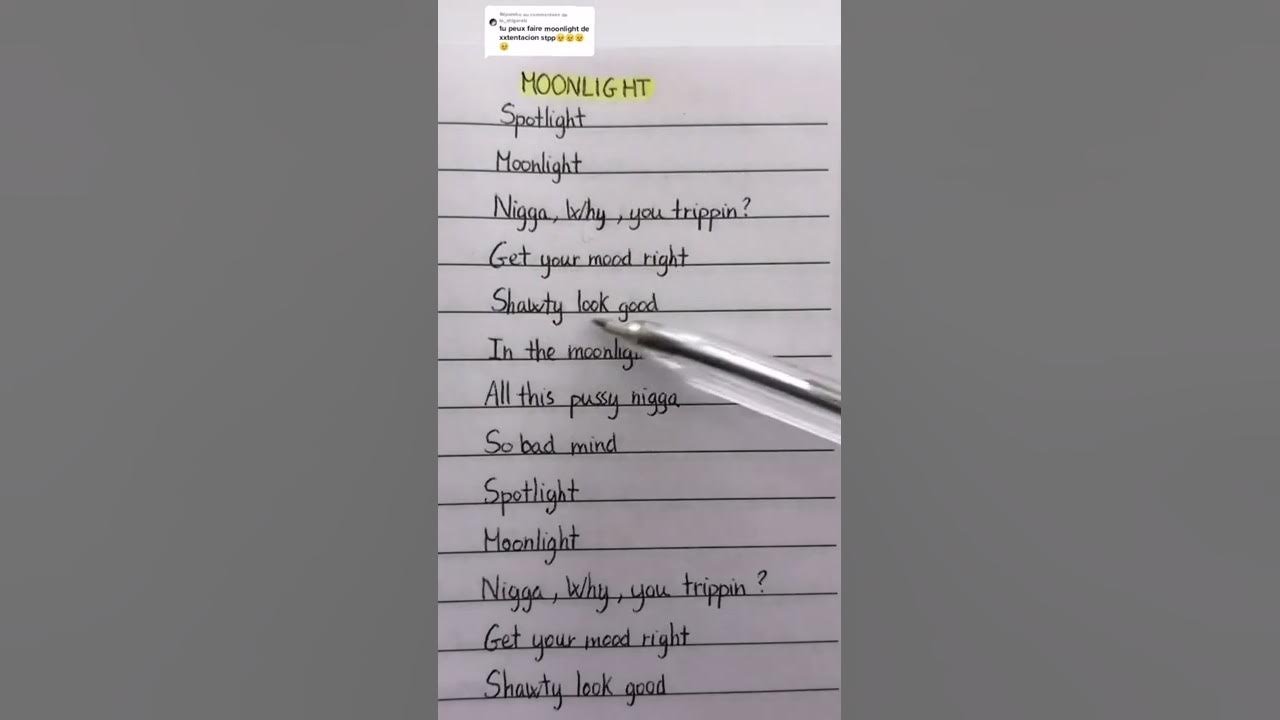 Réponse au commentaire de
tu peux faire moonlight de
xxtentacion stpp🥺🥺🥺
🥺
MOONLIGHT
Spotlight
Moonlight
Nigga, Why, you trippin?
Get your mood right
Shawty look good
In the moonlig
All this pussy nigga
So bad mind
Spotlight
Moonlight
Nigga, Why, you trippin?
Get your mood right
Shawty look good